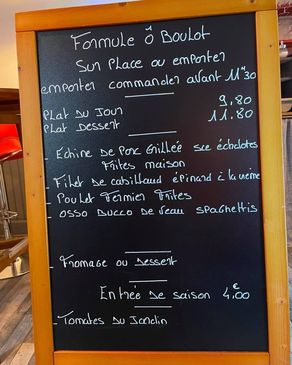 Formule ô Boulot
Sur Place ou emporter
emporter commander avant 11H30
Plat Du Jour 9,80
Plat Dessert 11.80
- Echine de Porc Grillée sce échalotes
Frites maison
- Filet de cabillaud épinard à la crème
- Poulet Fermier Frites
- osso Bucco de veau spaghettis
- Fromage ou Dessert
Entrée de saison 4€,00
- Tomates Du Jardin